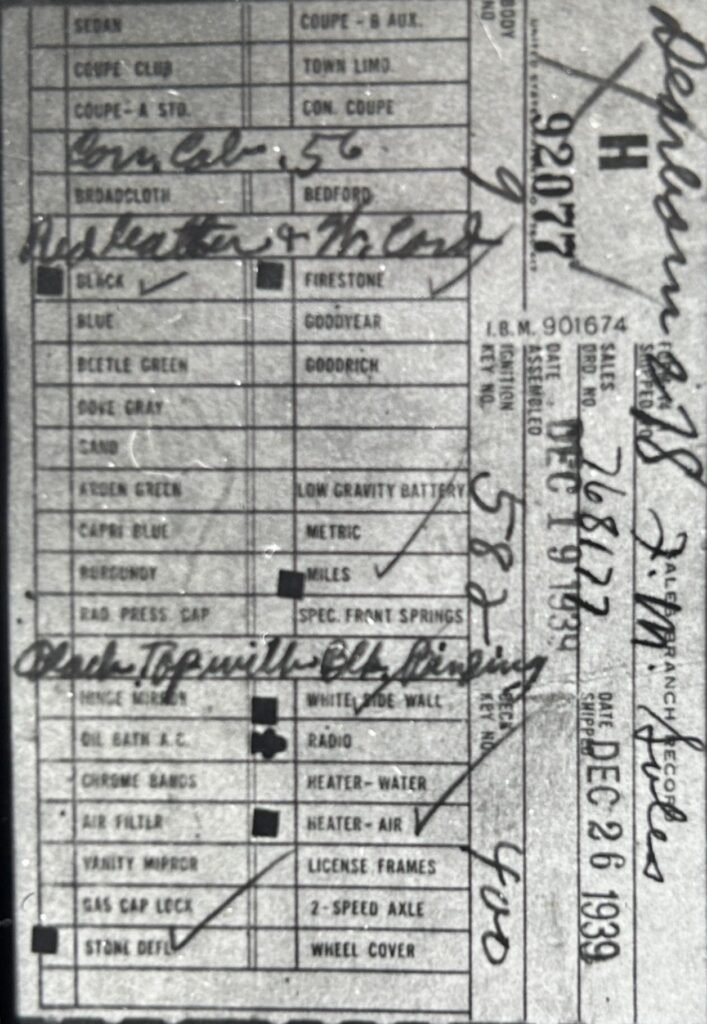 SEDAN COUPE - B AUX.
COUPE CLUB TOWN LIMO.
COUPE - A STD. CON. COUPE
Con, Cab. 56
BROADCLOTH BEDFORD
Red leather & W. Cord
BLACK FIRESTONE
BLUE GOODYEAR
BEETLE GREEN GOODRICH
DOVE GRAY
SAND
ARDEN GREEN LOW GRAVITY BATTERY
CAPRI BLUE METRIC
BURGUNDY MILES
RAD PRESS CAP SPEC. FRONT SPRINGS
Black Top with Blk, Binding
HINGE MIRROR WHITE SIDE WALL
OIL BATH A.C. RADIO
CHROME BANDS HEATER - WATER
AIR FILTER HEATER - AIR
VANITY MIRROR LICENSE FRAMES
GAS CAP LOCK 2 - SPEED AXLE
STONE DEFL WHEEL COVER
BODY NO 9
H
92077
I.B.M. 901674
IGNITION KEY NO. 582
DECK KEY NO 400
DATE ASSEMBLED DEC 19 1939
SALES ORD. NO 768177
DATE SHIPPED DEC 26 1939
SHIPPED
Dearborn 78 F. M. Sales
SALES BRANCH RECORD